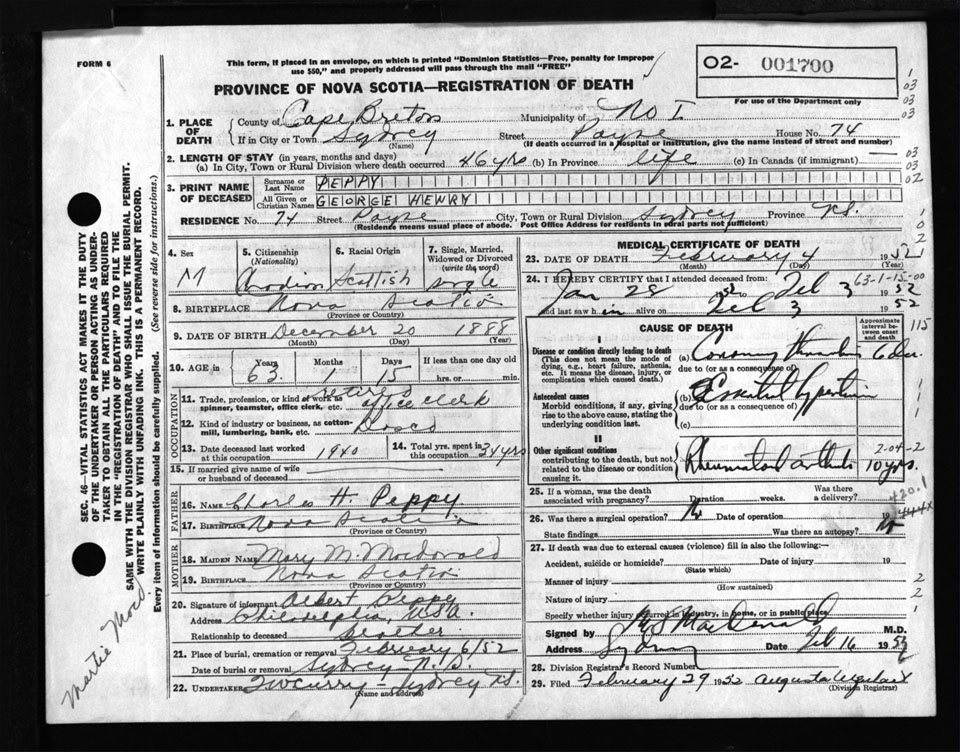 FORM 6
This form, if placed in an envelope, on which is printed "Dominion Statistics—Free, penalty for improper
use $50," and properly addressed will pass through the mail "FREE"
O2- 001700
For use of the Department only
PROVINCE OF NOVA SCOTIA—REGISTRATION OF DEATH
1. PLACE OF DEATH
County of Cape Breton Municipality of No I
If in City or Town Sydney Street Payne House No. 74
(Name) (If death occurred in a hospital or institution, give the name instead of street and number)
2. LENGTH OF STAY (in years, months and days)
(a) In City, Town or Rural Division where death occurred 46 yrs (b) In Province life (c) In Canada (if immigrant) —
3. PRINT NAME OF DECEASED
Surname or Last Name PEPPY
All Given or Christian Names GEORGE HENRY
RESIDENCE No. 74 Street Payne City, Town or Rural Division Sydney Province N.S.
(Residence means usual place of abode. Post Office Address for residents in rural parts not sufficient)
4. Sex M
5. Citizenship (Nationality) Canadian
6. Racial Origin Scottish
7. Single, Married, Widowed or Divorced (write the word) single
8. BIRTHPLACE Nova Scotia
(Province or Country)
9. DATE OF BIRTH December 20 1888
(Month) (Day) (Year)
10. AGE in Years 63 Months 1 Days 15 If less than one day
hrs. or min.
OCCUPATION
11. Trade, profession, or kind of work as spinner, teamster, office clerk, etc. retired office clerk
12. Kind of industry or business, as cotton-mill, lumbering, bank, etc.
13. Date deceased last worked at this occupation 1940
14. Total yrs. spent in this occupation 34 yrs
15. If married give name of wife or husband of deceased
FATHER
16. NAME Charles H. Peppy
17. BIRTHPLACE Nova Scotia
(Province or Country)
MOTHER
18. MAIDEN NAME Mary M. Macdonald
19. BIRTHPLACE Nova Scotia
(Province or Country)
20. Signature of informant Albert Peppy
Address Philadelphia, U.S.A.
Relationship to deceased brother
21. Place of burial, cremation or removal February 6/52
Date of burial or removal Sydney N.S.
22. UNDERTAKER T W Curry — Sydney N.S.
(Name and address)
MEDICAL CERTIFICATE OF DEATH
23. DATE OF DEATH February 4 1952
(Month) (Day) (Year)
24. I HEREBY CERTIFY that I attended deceased from:
63-1-15-00
Jan 28 1952 to Feb 3 1952
and last saw h im alive on Feb 3 1952
CAUSE OF DEATH
Approximate interval between onset and death
I
Disease or condition directly leading to death
(This does not mean the mode of dying, e.g., heart failure, asthenia, etc. It means the disease, injury, or complication which caused death.)
(a) Coronary
due to (or as a consequence of)
Antecedent causes
Morbid conditions, if any, giving rise to the above cause, stating the underlying condition last.
(b) Essential hypertension
due to (or as a consequence of)
(c)
II
Other significant conditions
contributing to the death, but not related to the disease or condition causing it.
Rheumatoid arthritis 10 yrs.
2-04-2
25. If a woman, was the death associated with pregnancy? Duration weeks. Was there a delivery?
420.1
444X
26. Was there a surgical operation? No Date of operation 19
State findings Was there an autopsy? No
27. If death was due to external causes (violence) fill in also the following:—
Accident, suicide or homicide? Date of injury 19
(State which)
Manner of injury
(How sustained)
Nature of injury
Specify whether injury occurred in industry, in home, or in public place
Signed by MacDonald M.D.
Address Sydney Date Feb 16 1952
28. Division Registrar's Record Number
29. Filed February 29 1952 Augusta
(Division Registrar)
SEC. 46—VITAL STATISTICS ACT MAKES IT THE DUTY
OF THE UNDERTAKER OR PERSON ACTING AS UNDER-
TAKER TO OBTAIN ALL THE PARTICULARS REQUIRED
IN THE "REGISTRATION OF DEATH" AND TO FILE THE
SAME WITH THE DIVISION REGISTRAR WHO SHALL ISSUE THE BURIAL PERMIT.
WRITE PLAINLY WITH UNFADING INK. THIS IS A PERMANENT RECORD.
Every item of information should be carefully supplied. (See reverse side for instructions.)
1
03
03
03
03
03
02
1
0
2
115
1
1
1
2
2
1